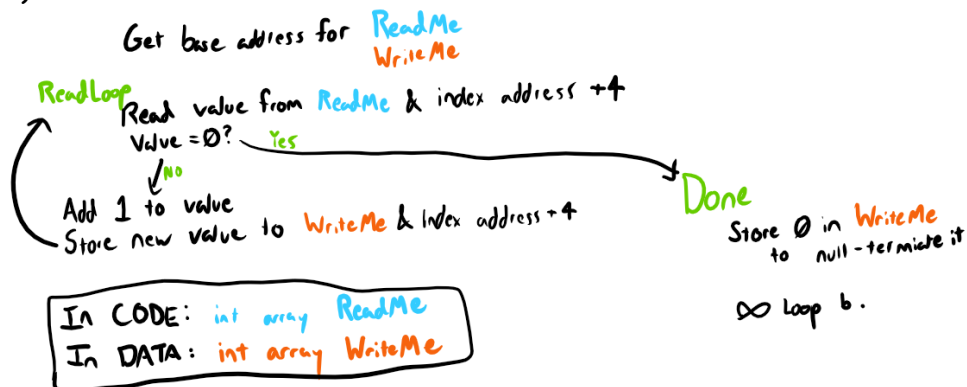 Get base address for ReadMe
WriteMe
ReadLoop
Read value from ReadMe & index address +4
Value = Ø? Yes
NO
Add 1 to value
Store new value to WriteMe & Index address +4
Done
Store Ø in WriteMe
to null-termiate it
∞ Loop b.
In CODE: int array ReadMe
In DATA: int array WriteMe